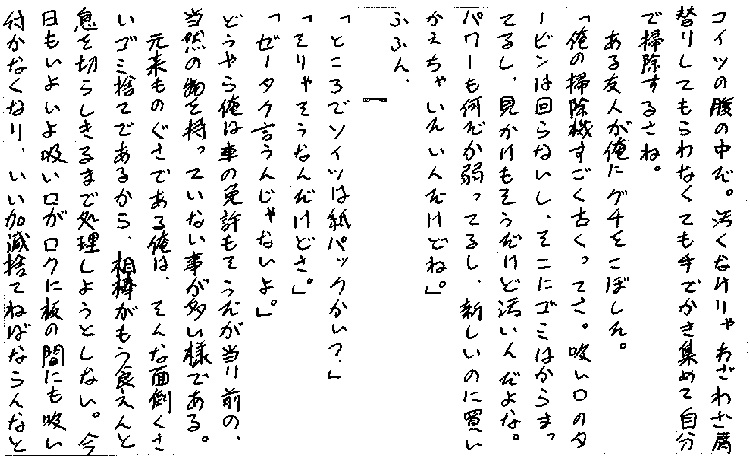 コイツの腹の中だ。汚くなけりゃわざわざ馬
替りしてもらわなくても手でかき集めて自分
で掃除するさね。
ある友人が俺にグチをこぼした。
「俺の掃除機すごく古くってさ。吸い口のタ
ービンは回らないし、そこにゴミはからまっ
てるし、見かけもそうだけど汚いんだよな。
パワーも何だか弱ってるし、新しいのに買い
かえちゃいたいんだけどね。」
ふふん、
「ところでソイツは紙パックかい？」
「そりゃそうなんだけどさ。」
「ゼータク言うんじゃないよ。」
どうやら俺は車の免許もそうだが当り前の、
当然の物を持っていない事が多い様である。
元来ものぐさである俺は、そんな面倒くさ
いゴミ捨てであるから、相棒がもう食えんと
息を切らしきるまで処理しようとしない。今
日もいよいよ吸い口がロクに板の間にも吸い
付かなくなり、いい加減捨てねばならんなと